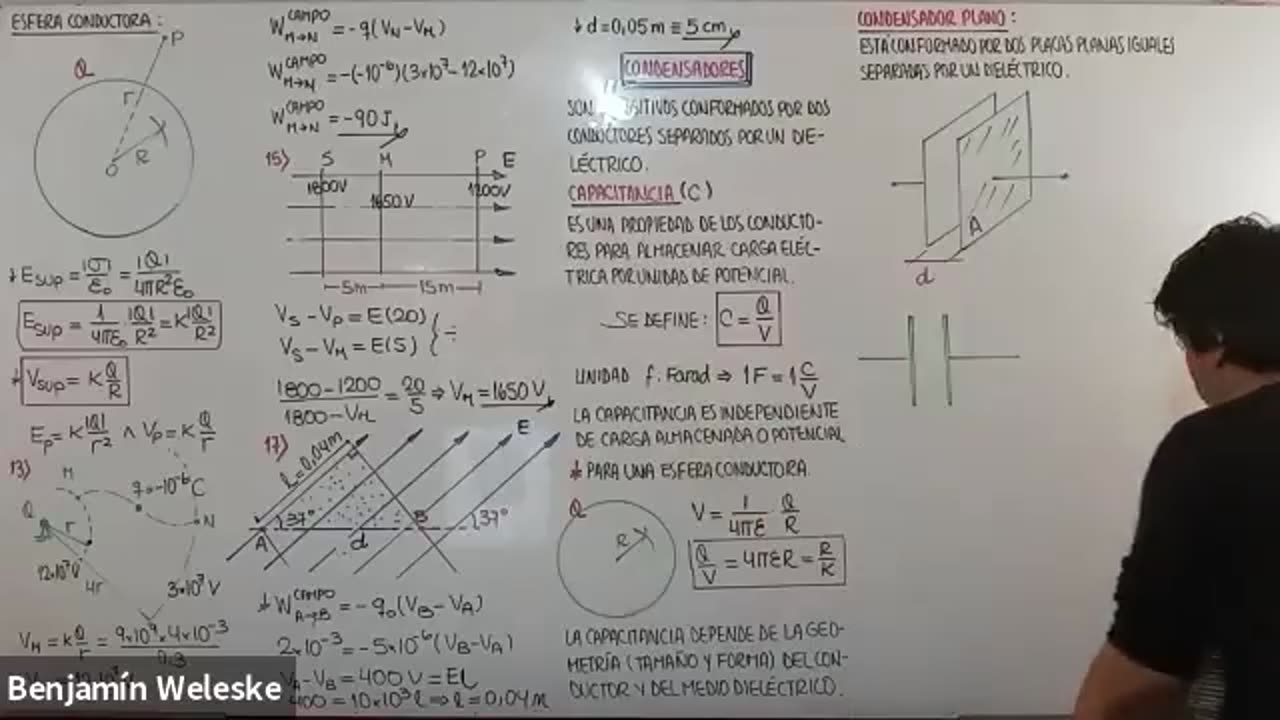 ESFERA CONDUCTORA:
P
Q
r
R
O
↓ E_SUP = |σ|/ε₀ = |Q|/4πR²ε₀
E_SUP = 1/4πε₀ · |Q|/R² = K|Q|/R²
↓ V_SUP = K Q/R
E_P = K|Q|/r² ∧ V_P = K Q/r
13)
M
q₀=-10⁻⁶C
Q
r
N
12×10⁷V
4r
3×10⁷V
V_M = K Q/r = 9×10⁹·4×10⁻³/0,3
W^CAMPO_M→N = -q(V_N-V_M)
W^CAMPO_M→N = -(-10⁻⁶)(3×10⁷-12×10⁷)
W^CAMPO_M→N = -90J
15)
S M P E
1800V 1650V 1200V
5m 15m
V_S - V_P = E(20)
V_S - V_M = E(5) } ÷
1800-1200/1800-V_M = 20/5 ⇒ V_M = 1650V
17)
l=0,04m
E
37° 37°
A d B
↓ W^CAMPO_A→B = -q₀(V_B-V_A)
2×10⁻³ = -5×10⁻⁶(V_B-V_A)
V_A-V_B = 400V = El
400 = 10×10³l ⇒ l = 0,04m
↓ d=0,05m ≡ 5cm
CONDENSADORES
SON CONFORMADOS POR DOS
CONDUCTORES SEPARADOS POR UN DIE-
LÉCTRICO.
CAPACITANCIA (C)
ES UNA PROPIEDAD DE LOS CONDUCTO-
RES PARA ALMACENAR CARGA ELÉC-
TRICA POR UNIDAD DE POTENCIAL.
SE DEFINE: C = Q/V
UNIDAD f: Farad ⇒ 1F = 1 C/V
LA CAPACITANCIA ES INDEPENDIENTE
DE CARGA ALMACENADA O POTENCIAL
↓ PARA UNA ESFERA CONDUCTORA.
Q
R
V = 1/4πε · Q/R
Q/V = 4πεR = R/K
LA CAPACITANCIA DEPENDE DE LA GEO-
METRÍA (TAMAÑO Y FORMA) DEL CON-
DUCTOR Y DEL MEDIO DIELÉCTRICO.
CONDENSADOR PLANO:
ESTÁ CONFORMADO POR DOS PLACAS PLANAS IGUALES
SEPARADAS POR UN DIELÉCTRICO.
A
d
Benjamín Weleske